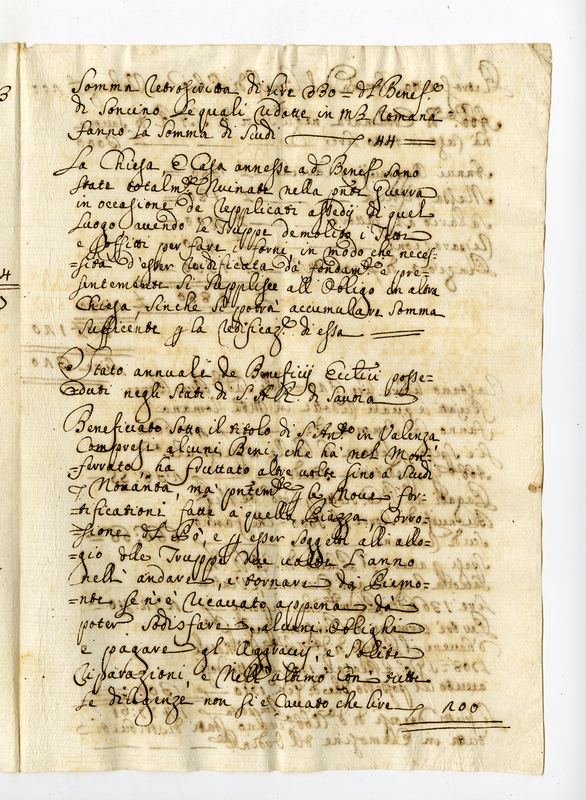 Somma retroscritta di lire 330= del Benef.º
di Soncino le quali ridotte in m.ta Romana
fanno la Somma di Scudi 44
La Chiesa, e Casa annesse a d.º Benef.º sono
state totalm.te ruinate nella pnte Guerra
in occasione de replicati assedij di quel
Luogo avendo le Truppe demolito i Tetti
e soffitti per fare i forni, in modo che neces-
=sita d'esser riedificata da fondam.ti e pre-
=sentemente si supplisce all'obligo in altra
Chiesa, sinche si potrà accumulare Somma
sufficente p la reedificaz.e d'essa
Stato annuale de Beneficij Ecclici posse-
=duti negli Stati di S. A. R. di Savoia
Beneficiato sotto il titolo di S. Ant.º in Valenza
Compresi alcuni Beni, che ha nel Mon-
=ferrato, ha fruttato altre volte sino a Scudi
Novanta, ma pntem.te p le nuove for-
=tificationi fatte a quella Piazza, Corro-
=sione del Pò, e p esser soggetti all'allo-
=gio delle Truppe due volte l'anno
nell'andare, e tornare da Piemo-
=nte se n'è ricavato appena da
poter sodisfare alcuni oblighi
e pagare gl'Aggravij, e solite
riparazioni e nell'ultimo con tutte
le diligenze non si è cavato che lire 100